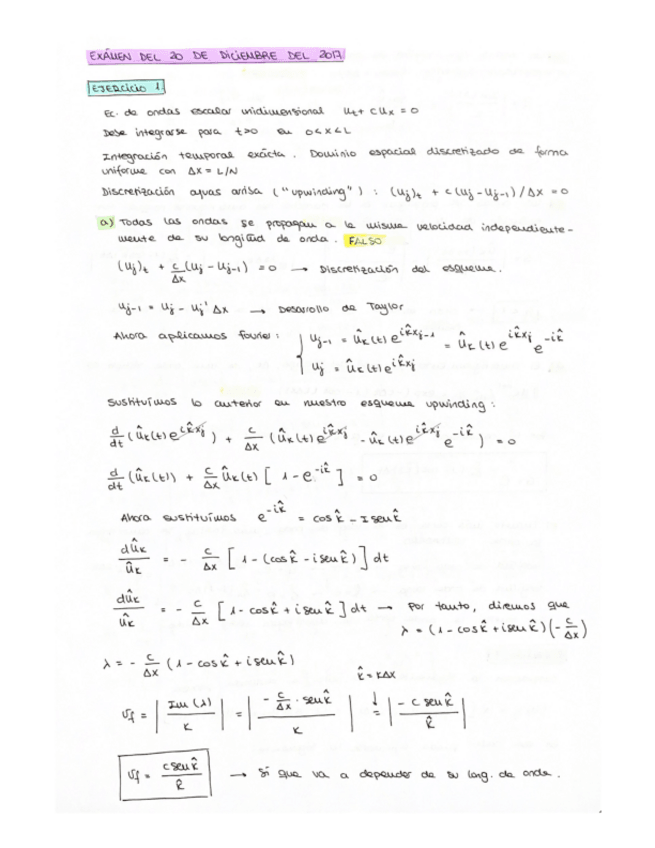 EXÁMEN DEL 20 DE DICIEMBRE DEL 2017
EJERCICIO 1
Ec. de ondas escalar unidimensional u_t + c u_x = 0
Debe integrarse para t>0 en 0<x<L
Integración temporal exácta. Dominio espacial discretizado de forma
uniforme con Δx = L/N
Discretización aguas arriba ("upwinding") : (u_j)_t + c (u_j - u_{j-1}) / Δx = 0
a) Todas las ondas se propagan a la misma velocidad independiente-
mente de su longitud de onda. FALSO
(u_j)_t + c/Δx (u_j - u_{j-1}) = 0 → Discretización del esquema.
u_{j-1} = u_j - u_j' Δx → Desarollo de Taylor
Ahora aplicamos fourier: { u_{j-1} = û_k(t) e^{ik̂x_{j-1}} = û_k(t) e^{ik̂x_j} e^{-ik̂}
u_j = û_k(t) e^{ik̂x_j}
Sustituímos lo anterior en nuestro esquema upwinding:
d/dt (û_k(t) e^{ik̂x_j}) + c/Δx (û_k(t) e^{ik̂x_j} - û_k(t) e^{ik̂x_j} e^{-ik̂}) = 0
d/dt (û_k(t)) + c/Δx û_k(t) [1 - e^{-ik̂}] = 0
Ahora sustituímos e^{-ik̂} = cos k̂ - i sen k̂
dû_k/û_k = - c/Δx [1 - (cos k̂ - i sen k̂)] dt
dû_k/û_k = - c/Δx [1 - cos k̂ + i sen k̂] dt → Por tanto, diremos que
λ = (1 - cos k̂ + i sen k̂)(-c/Δx)
λ = - c/Δx (1 - cos k̂ + i sen k̂)
k̂ = kΔx
v_f = | Im(λ)/k | = | (-c/Δx · sen k̂)/k | = | -c sen k̂/k̂ |
v_f = c sen k̂/k̂ → Sí que va a depender de su long. de onda.